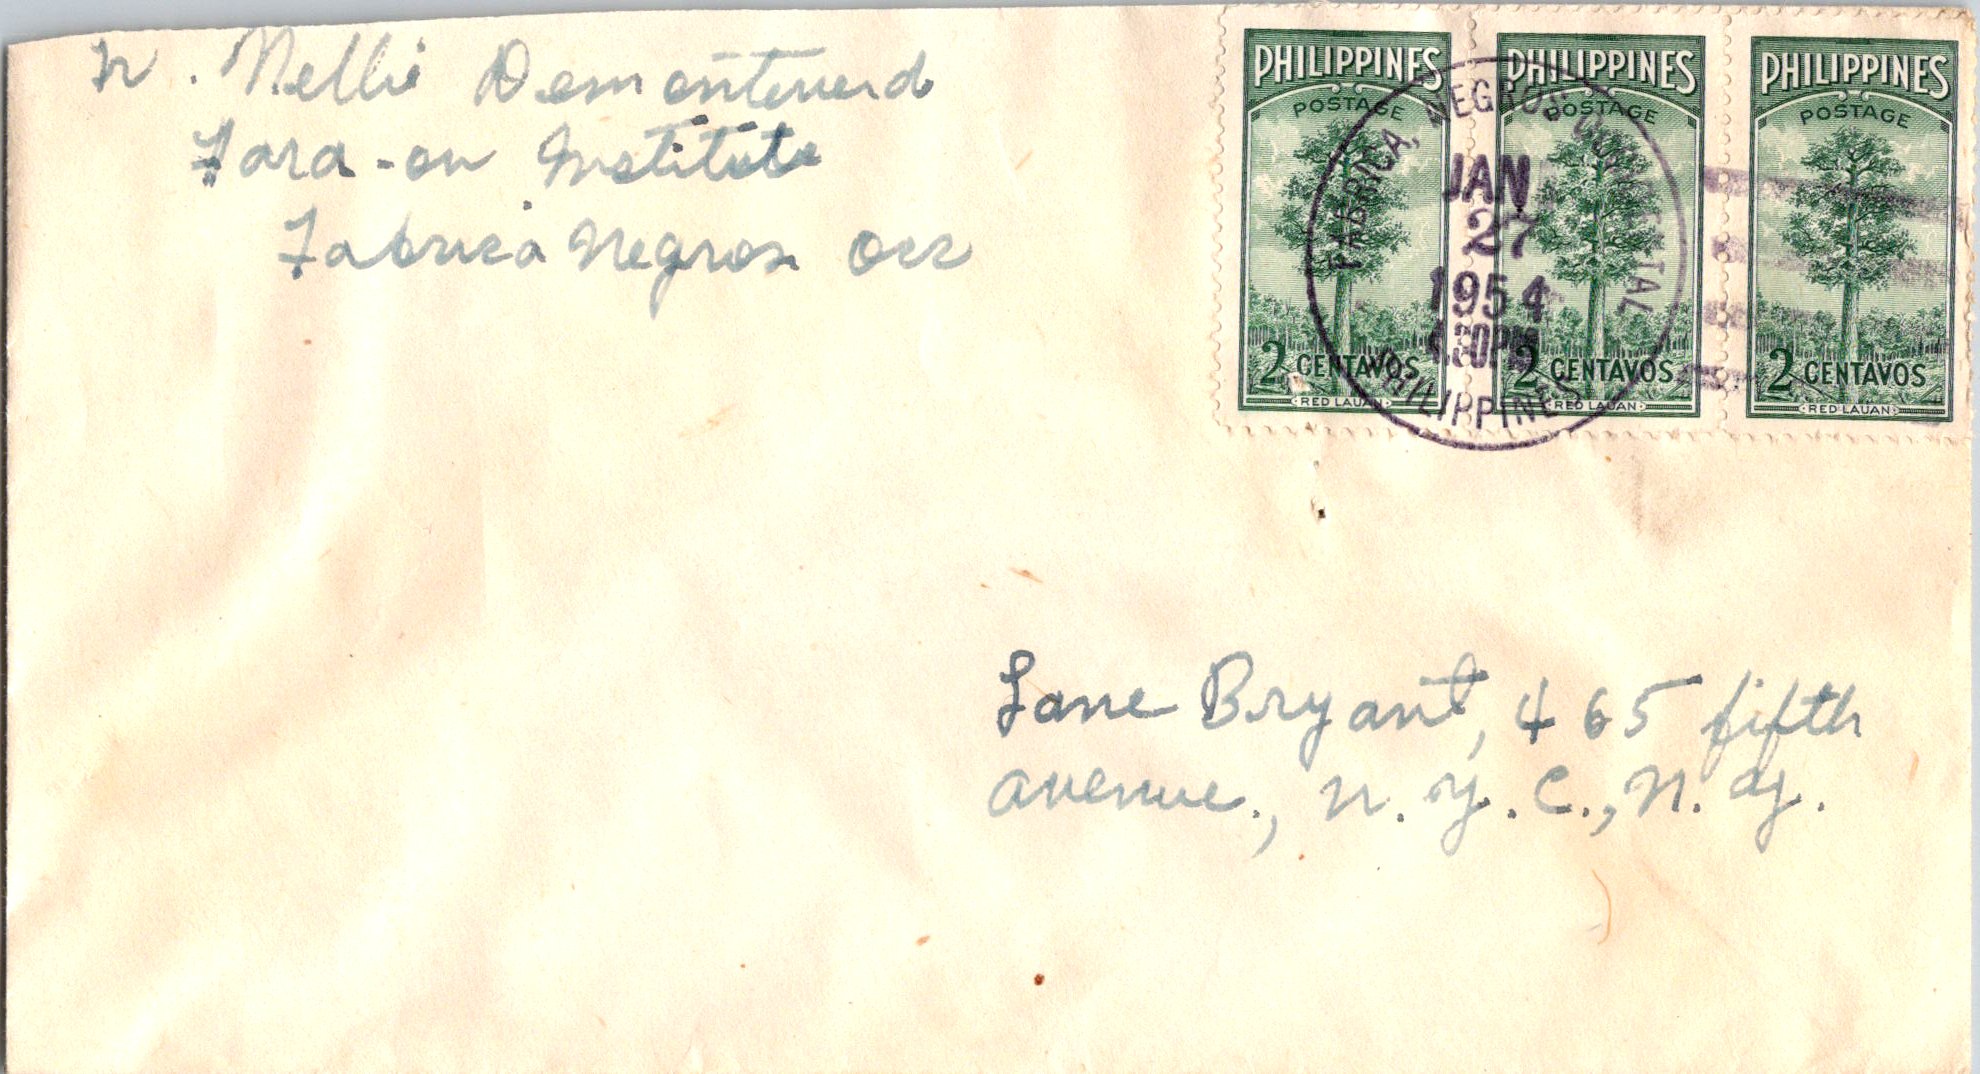 Fr. Nellie Demonteverd
Fara-on Institute
Fabrica Negros Occ
PHILIPPINES
POSTAGE
2 CENTAVOS
RED LAUAN
PHILIPPINES
POSTAGE
2 CENTAVOS
RED LAUAN
PHILIPPINES
POSTAGE
2 CENTAVOS
RED LAUAN
FABRICA, NEGROS OCCIDENTAL
JAN
27
1954
4:30PM
PHILIPPINES
Lane Bryant, 465 fifth
avenue., N.Y.C., N.Y.